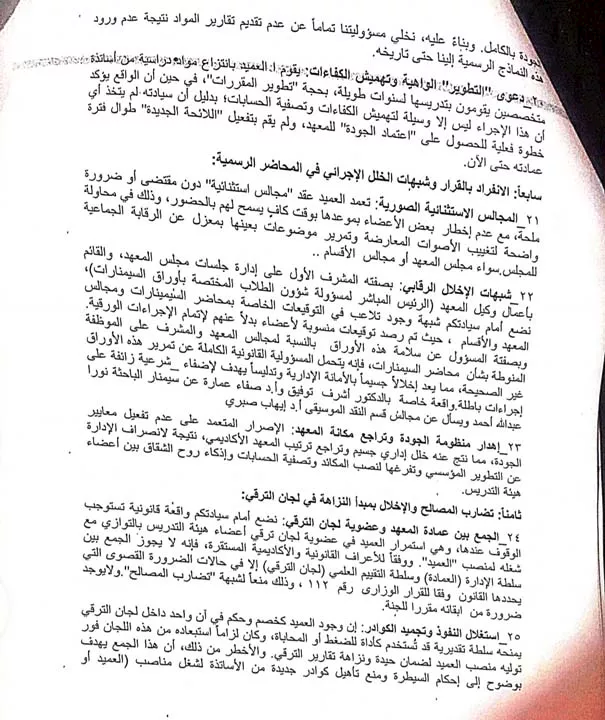 لجودة بالكامل. وبناءً عليه، نخلي مسؤوليتنا تماماً عن عدم تقديم تقارير المواد نتيجة عدم ورود
هذه النماذج الرسمية إلينا حتى تاريخه.
٢٠ دعوى "التطوير" الواهية وتهميش الكفاءات: يقوم ا. العميد بانتزاع مواد دراسية من أساتذة
متخصصين يقومون بتدريسها لسنوات طويلة، بحجة "تطوير المقررات"، في حين أن الواقع يؤكد
أن هذا الإجراء ليس إلا وسيلة لتهميش الكفاءات وتصفية الحسابات؛ بدليل أن سيادته لم يتخذ أي
خطوة فعلية للحصول على "اعتماد الجودة" للمعهد، ولم يقم بتفعيل "اللائحة الجديدة" طوال فترة
عمادته حتى الآن.
سابعاً: الانفراد بالقرار وشبهات الخلل الإجرائي في المحاضر الرسمية:
٢١_المجالس الاستثنائية الصورية: تعمد العميد عقد "مجالس استثنائية" دون مقتضى أو ضرورة
ملحة، مع عدم إخطار بعض الأعضاء بموعدها بوقت كافٍ يسمح لهم بالحضور، وذلك في محاولة
واضحة لتغييب الأصوات المعارضة وتمرير موضوعات بعينها بمعزل عن الرقابة الجماعية
للمجلس.سواء مجلس المعهد أو مجالس الأقسام ..
٢٢_شبهات الإخلال الرقابي: بصفته المشرف الأول على إدارة جلسات مجلس المعهد، والقائم
بأعمال وكيل المعهد (الرئيس المباشر لمسؤولة شؤون الطلاب المختصة بأوراق السيمنارات)،
نضع أمام سيادتكم شبهة وجود تلاعب في التوقيعات الخاصة بمحاضر السيمينارات ومجالس
المعهد والأقسام ، حيث تم رصد توقيعات منسوبة لأعضاء بدلاً عنهم لإتمام الإجراءات الورقية.
وبصفته المسؤول عن سلامة هذه الأوراق بالنسبة لمجالس المعهد والمشرف على الموظفة
المنوطة بشأن محاضر السيمنارات، فإنه يتحمل المسؤولية القانونية الكاملة عن تمرير هذه الأوراق
غير الصحيحة، مما يعد إخلالاً جسيماً بالأمانة الإدارية وتدليساً يهدف لإضفاء _شرعية زائفة على
إجراءات باطلة.واقعة خاصة بالدكتور أشرف توفيق وأ.د صفاء عمارة عن سيمنار الباحثة نورا
عبدالله أحمد ويسأل عن مجالس قسم النقد الموسيقى أ.د إيهاب صبري
٢٣_إهدار منظومة الجودة وتراجع مكانة المعهد: الإصرار المتعمد على عدم تفعيل معايير
الجودة، مما نتج عنه خلل إداري جسيم وتراجع ترتيب المعهد الأكاديمي، نتيجة لانصراف الإدارة
عن التطوير المؤسسي وتفرغها لنصب المكائد وتصفية الحسابات وإذكاء روح الشقاق بين أعضاء
هيئة التدريس.
ثامناً: تضارب المصالح والإخلال بمبدأ النزاهة في لجان الترقي:
٢٤_الجمع بين عمادة المعهد وعضوية لجان الترقي: نضع أمام سيادتكم واقعة قانونية تستوجب
الوقوف عندها، وهي استمرار العميد في عضوية لجان ترقي أعضاء هيئة التدريس بالتوازي مع
شغله لمنصب "العميد". ووفقاً للأعراف القانونية والأكاديمية المستقرة، فإنه لا يجوز الجمع بين
سلطة الإدارة (العمادة) وسلطة التقييم العلمي (لجان الترقي) إلا في حالات الضرورة القصوى التي
يحددها القانون وفقا للقرار الوزارى رقم ١١٢ ، وذلك منعاً لشبهة "تضارب المصالح".ولايوجد
ضرورة من ابقائه مقررا للجنة.
٢٥_استغلال النفوذ وتجميد الكوادر: إن وجود العميد كخصم وحكم في آن واحد داخل لجان الترقي
يمنحه سلطة تقديرية قد تُستخدم كأداة للضغط أو المحاباة، وكان لزاماً استبعاده من هذه اللجان فور
توليه منصب العميد لضمان حيدة ونزاهة تقارير الترقي. والأخطر من ذلك، أن هذا الجمع يهدف
بوضوح إلى إحكام السيطرة ومنع تأهيل كوادر جديدة من الأساتذة لشغل مناصب (العميد أو